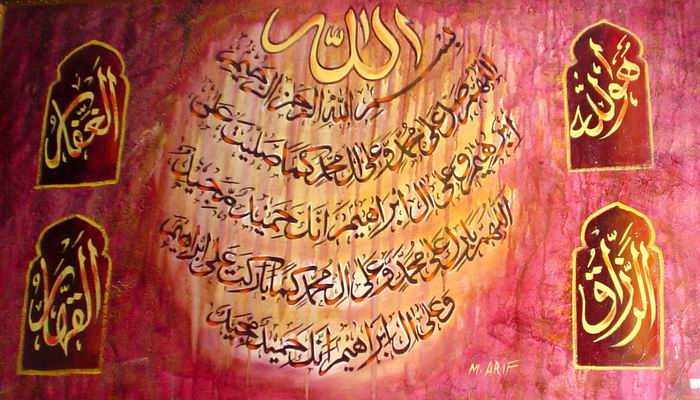 الله
بسم الله الرحمن الرحيم
اللهم صل على محمد وعلى ال محمد كما صليت على
ابرهيم وعلى ال ابراهيم انك حميد مجيد
اللهم بارك على محمد وعلى ال محمد كما باركت على ابراهيم
وعلى ال ابراهيم انك حميد مجيد
هو الله
الغفار
الرزاق
القهار
M. ARIF